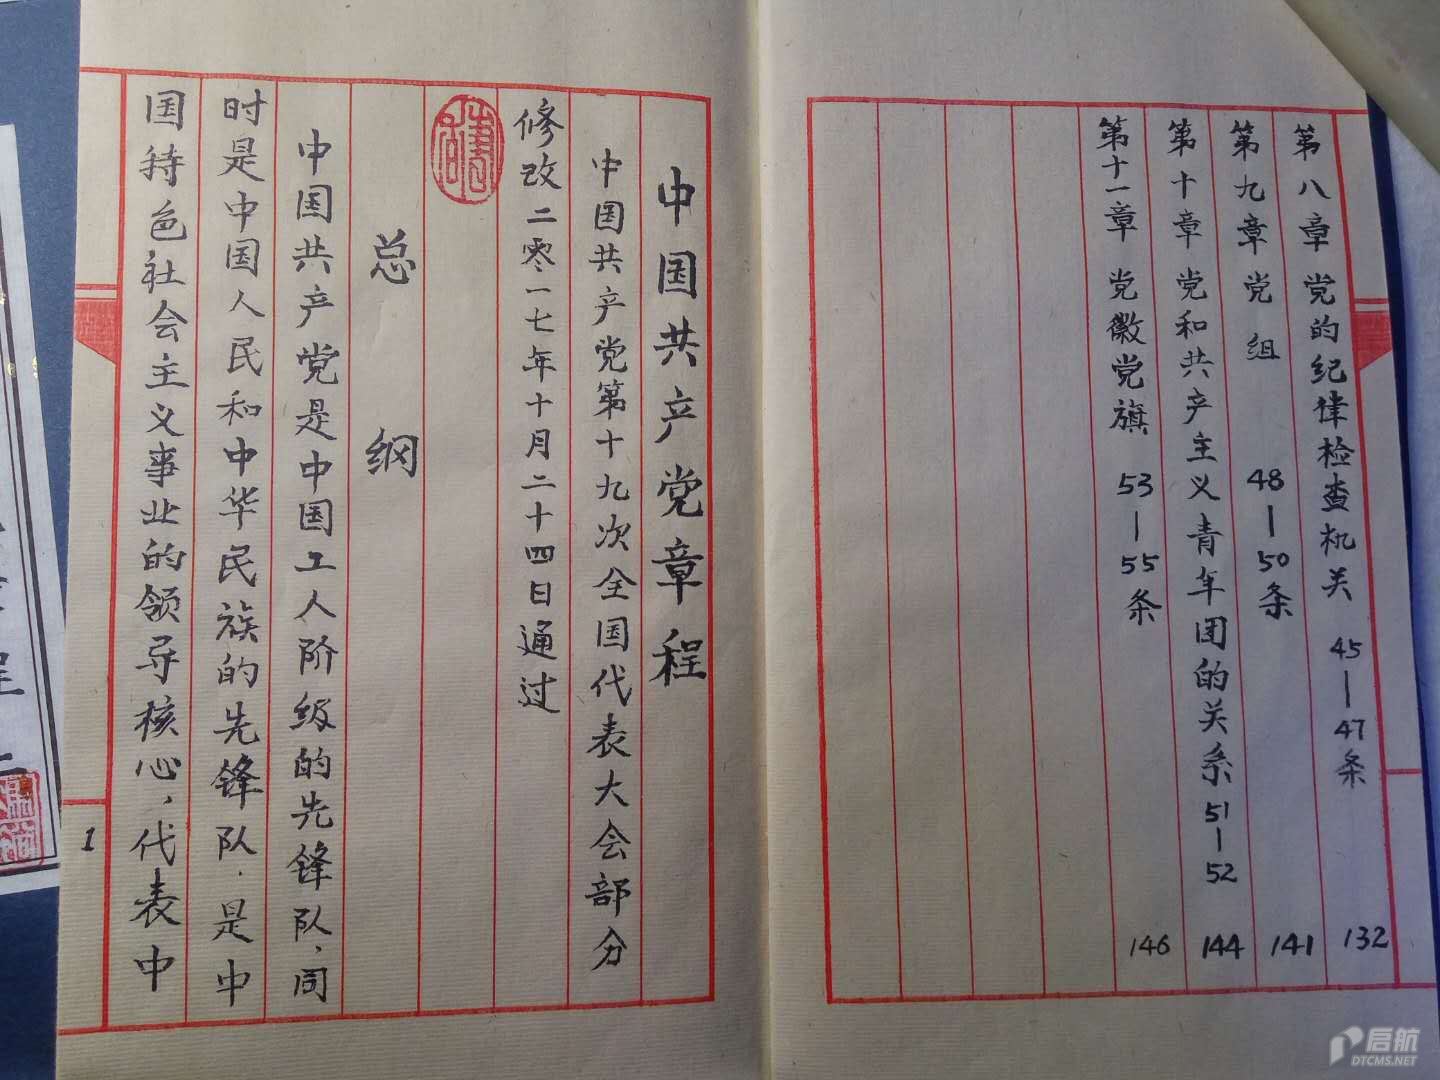 第八章 党的纪律检查机关 45—47条 132
第九章 党组 48—50条 141
第十章 党和共产主义青年团的关系 51—52 144
第十一章 党徽党旗 53—55条 146
中国共产党章程
中国共产党第十九次全国代表大会部分
修改二零一七年十月二十四日通过
总纲
中国共产党是中国工人阶级的先锋队，同
时是中国人民和中华民族的先锋队，是中
国特色社会主义事业的领导核心，代表中
1
程
启航
DTCMS.NET